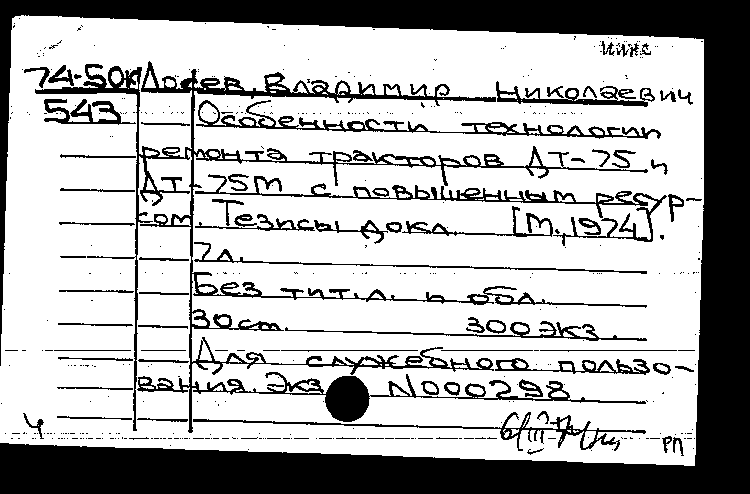 74-50к Лосев, Владимир Николаевич
543 Особенности технологии
ремонта тракторов ДТ-75 и
ДТ-75М с повышенным ресур-
сом. Тезисы докл. [М., 1974].
7л.
Без тит.л. и обл.
30см. 300 экз.
Для служебного пользо-
вания. Экз N000298.
ч
РП